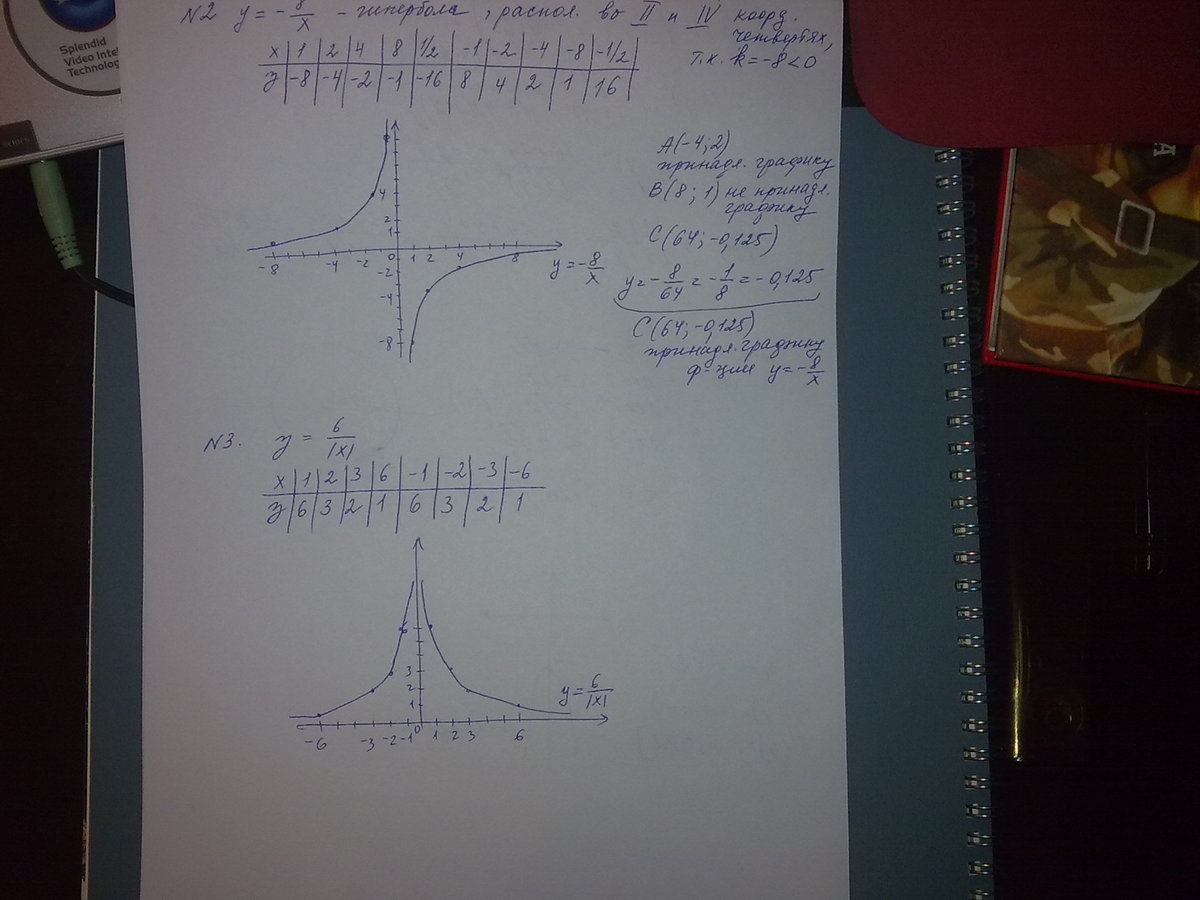 Splendid
Video Inte
Technolog
N2 y = -8/x - гипербола, распол. во II и IV коорд.
четвертях,
т.к. k = -8 < 0
x | 1 | 2 | 4 | 8 | 1/2 | -1 | -2 | -4 | -8 | -1/2
y | -8 | -4 | -2 | -1 | -16 | 8 | 4 | 2 | 1 | 16
A(-4; 2)
принадл. графику
B(8; 1) не принадл.
графику
C(64; -0,125)
y = -8/64 = -1/8 = -0,125
C(64; -0,125)
принадл. графику
ф-ции y = -8/x
4
2
1
-8 -4 -2 0 1 2 4 8
y = -8/x
-2
-4
-8
N3. y = 6/|x|
x | 1 | 2 | 3 | 6 | -1 | -2 | -3 | -6
y | 6 | 3 | 2 | 1 | 6 | 3 | 2 | 1
6
3
2
1
y = 6/|x|
-6 -3 -2 -1 0 1 2 3 6